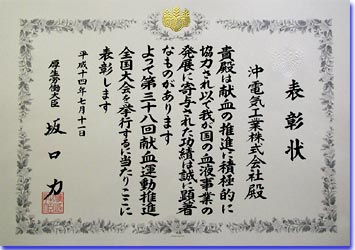 表彰状
沖電気工業株式会社殿
貴殿は献血の推進に積極的に
協力され以て我が国の血液事業の
発展に寄与された功績は誠に顕著
なものがあります
よって第三十八回献血運動推進
全国大会を挙行するに当たりここに
表彰します
平成十四年七月十一日
厚生労働大臣
坂口力